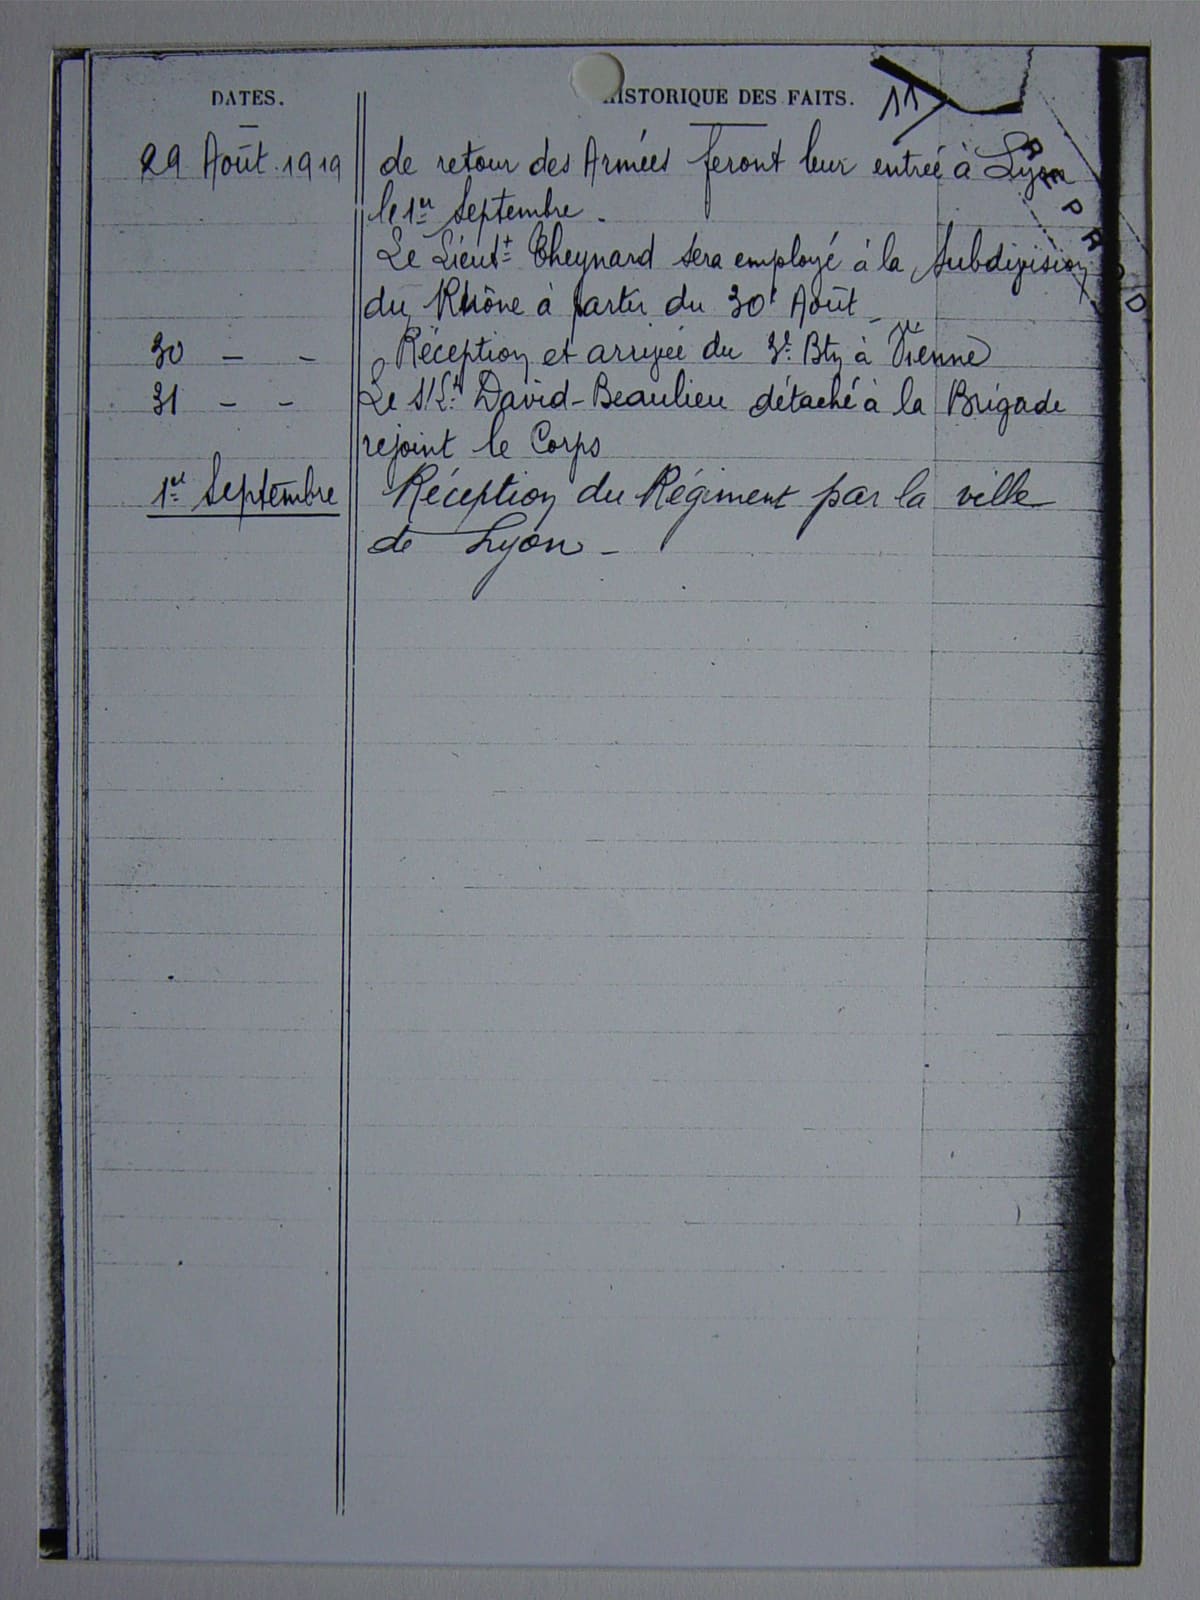 DATES. HISTORIQUE DES FAITS. 11
REPROD
29 Août 1919 de retour des Armées feront leur entrée à Lyon
le 1er Septembre.
Le Lieutt Cheynard sera employé à la Subdivision
du Rhône à partir du 30t Août
30 - - Réception et arrivée du 3e Btn à Vienne
31 - - Le S/Lt David-Beaulieu détaché à la Brigade
rejoint le Corps
1er Septembre Réception du Régiment par la ville
de Lyon -